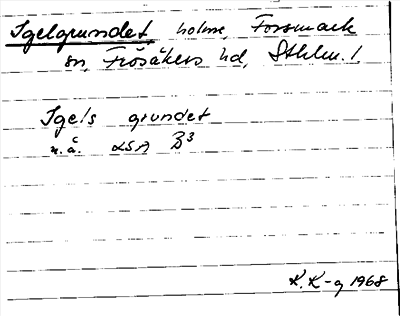 Igelgrundet, holme, Forsmark
sn, Frösåkers hd, Sthlm. l.
Igels grundet
n.å. LSA B³
K. K-g 1968